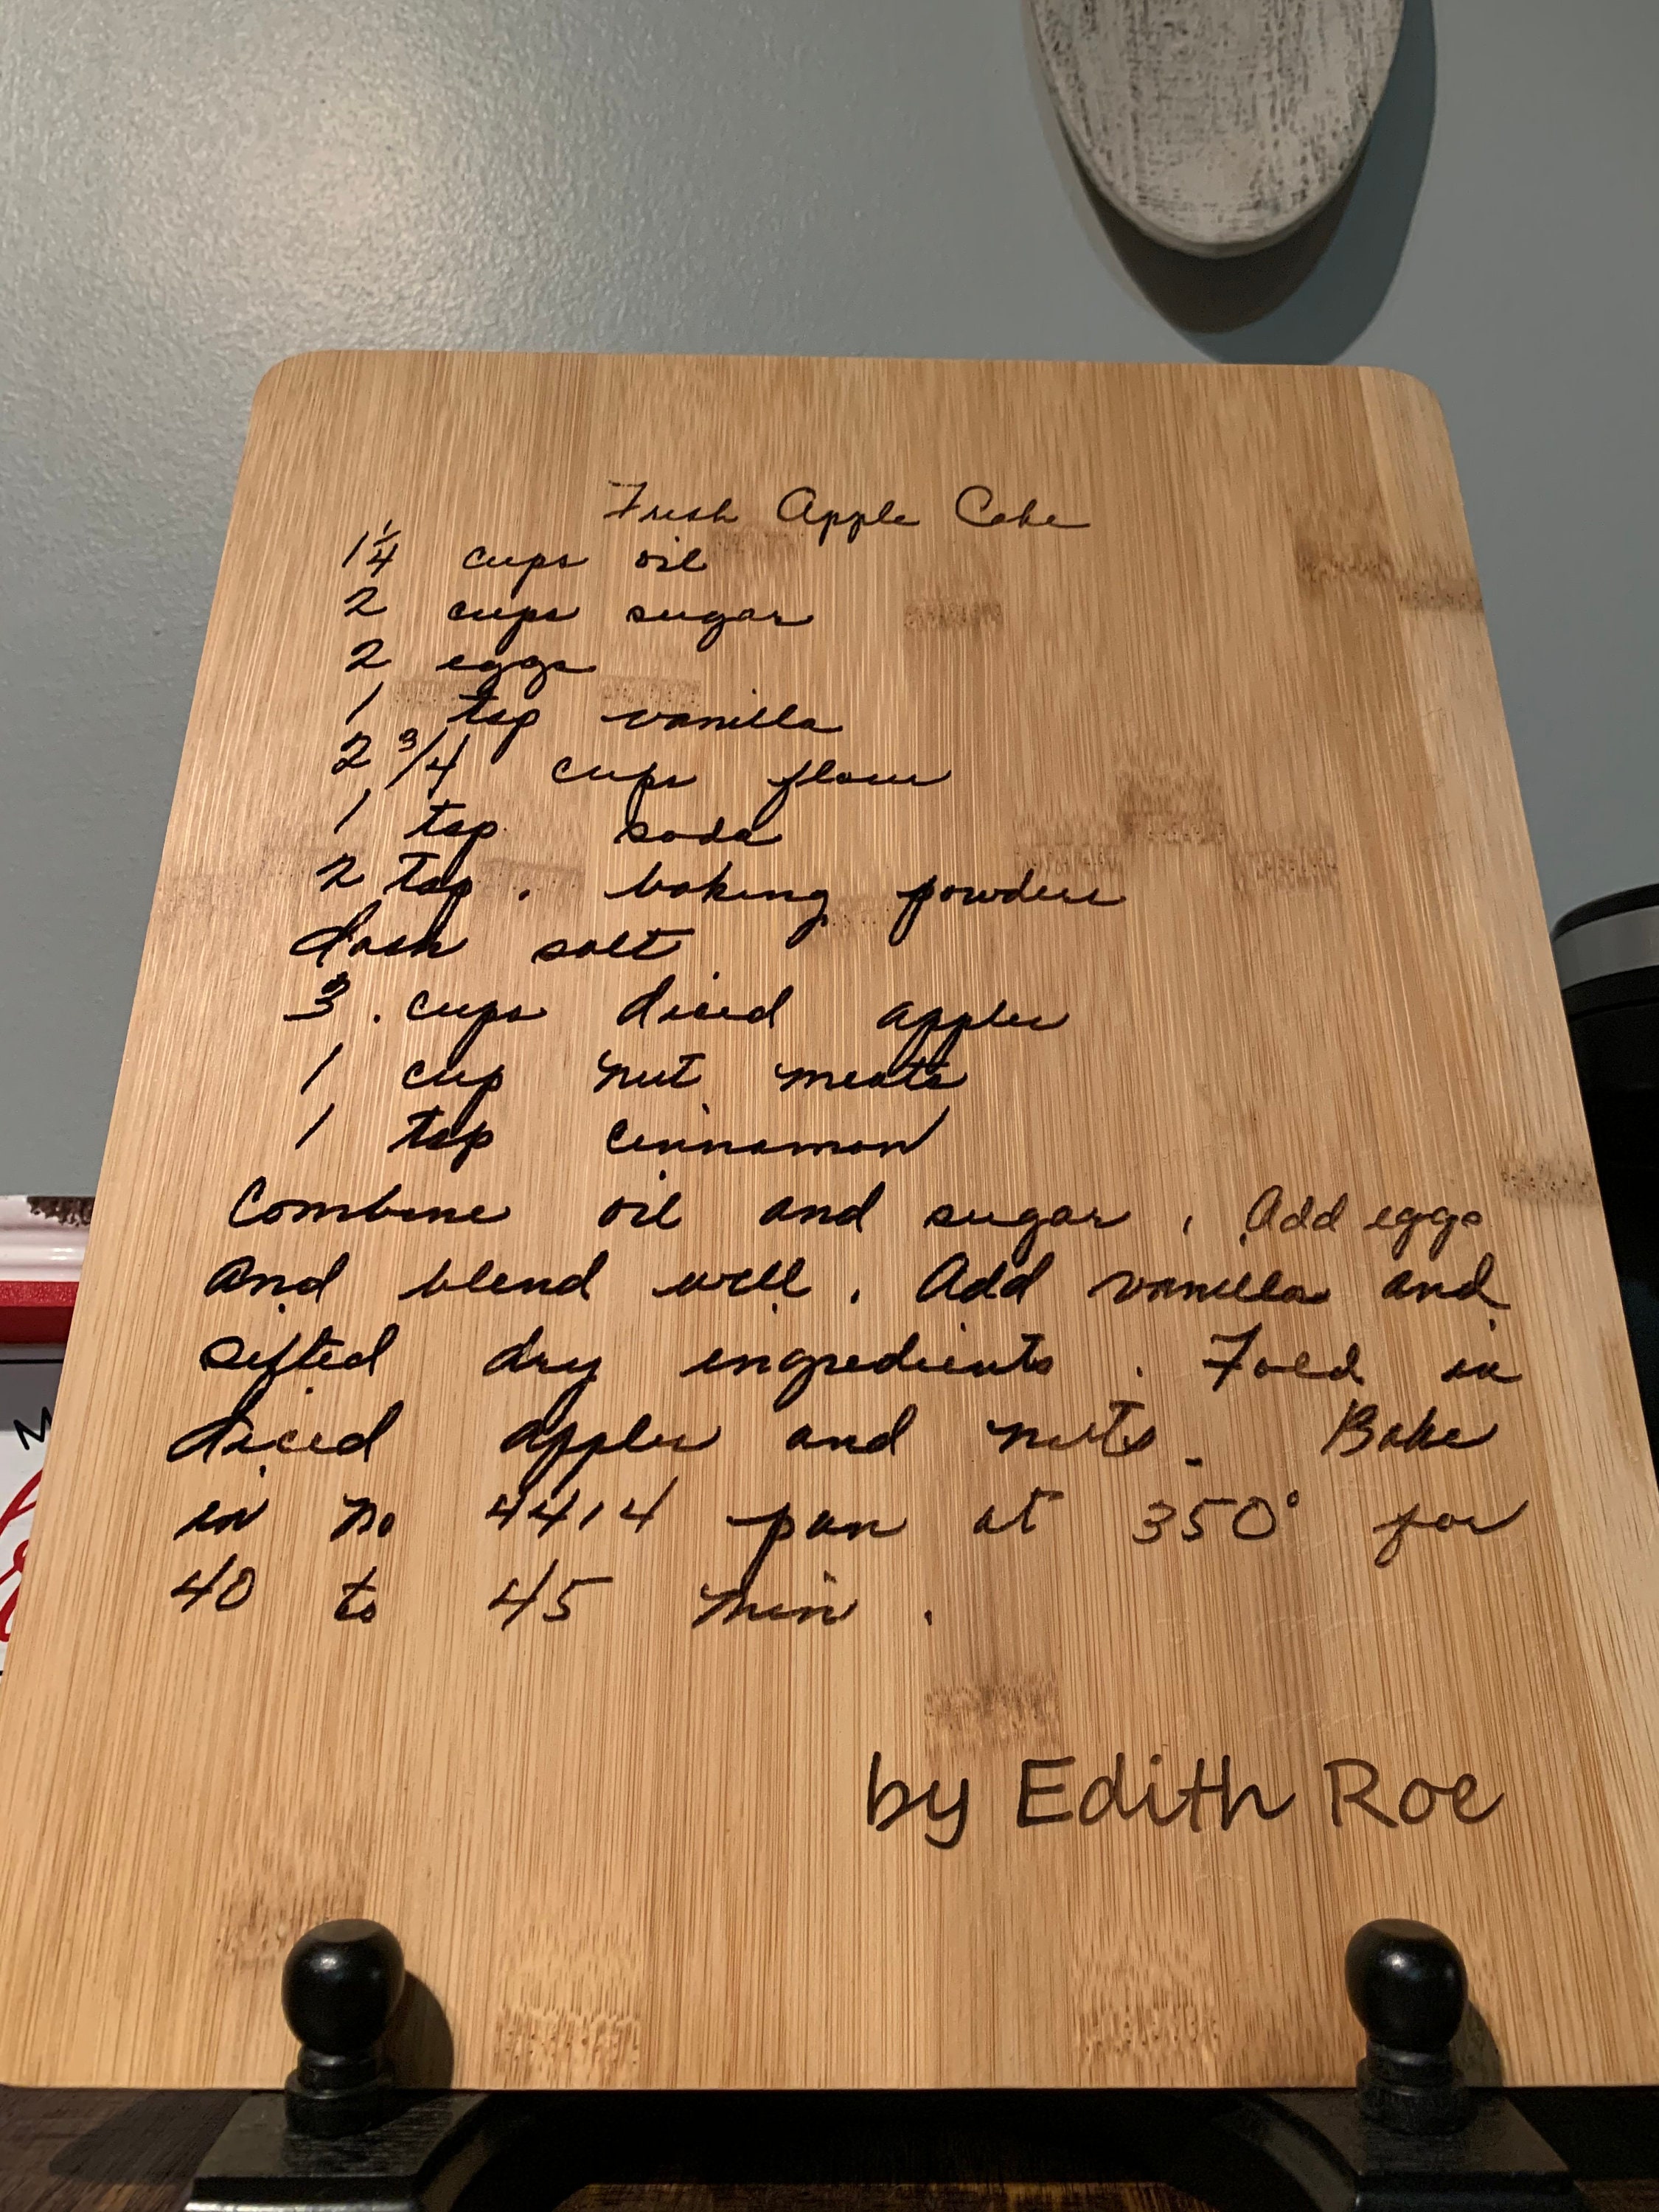 Fresh Apple Cake
1 1/4 cups oil
2 cups sugar
2 eggs
1 tsp vanilla
2 3/4 cups flour
1 tsp soda
2 Tsp. baking powder
dash salt
3 cups diced apples
1 cup nut meats
1 tsp cinnamon
Combine oil and sugar. Add eggs
And blend well. Add vanilla and
Sifted dry ingredients. Fold in
diced apples and nuts. Bake
in no 4414 pan at 350° for
40 to 45 min.
by Edith Roe